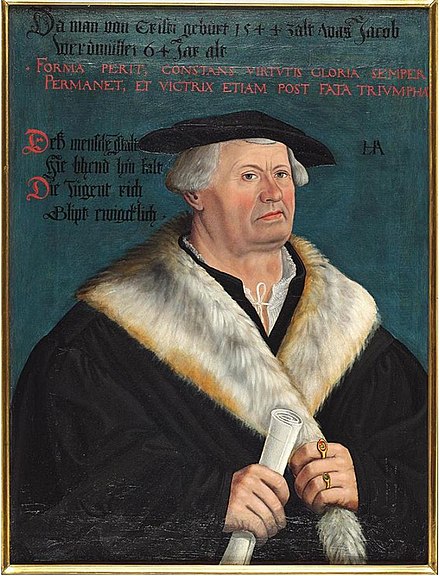 Da man von Cristi geburt 1544 zalt was Jacob
Werdmüller 64 Jar alt
· FORMA PERIT, CONSTANS VIRTVTIS GLORIA SEMPER
PERMANET, ET VICTRIX ETIAM POST FATA TRIVMPHA
Deß mensche gstalt
Hie blyend hin falt
Die Tugent rich
Blipt ewigcklich ·
HA